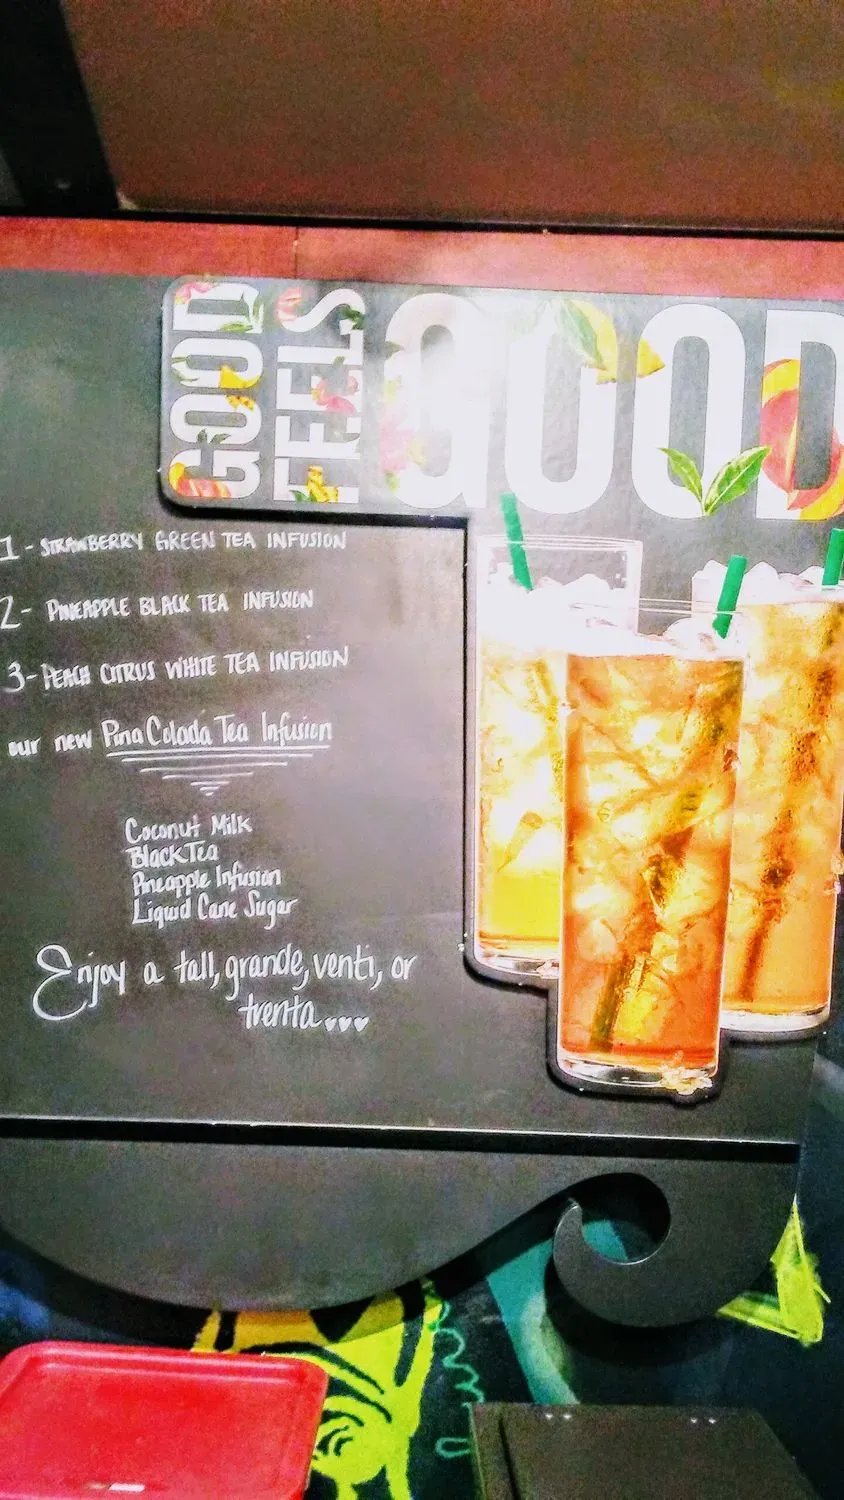 GOOD
FEELS
GOOD
1 - STRAWBERRY GREEN TEA INFUSION
2 - PINEAPPLE BLACK TEA INFUSION
3 - PEACH CITRUS WHITE TEA INFUSION
our new Pina Colada Tea Infusion
Coconut Milk
Black Tea
Pineapple Infusion
Liquid Cane Sugar
Enjoy a tall, grande, venti, or
trenta...